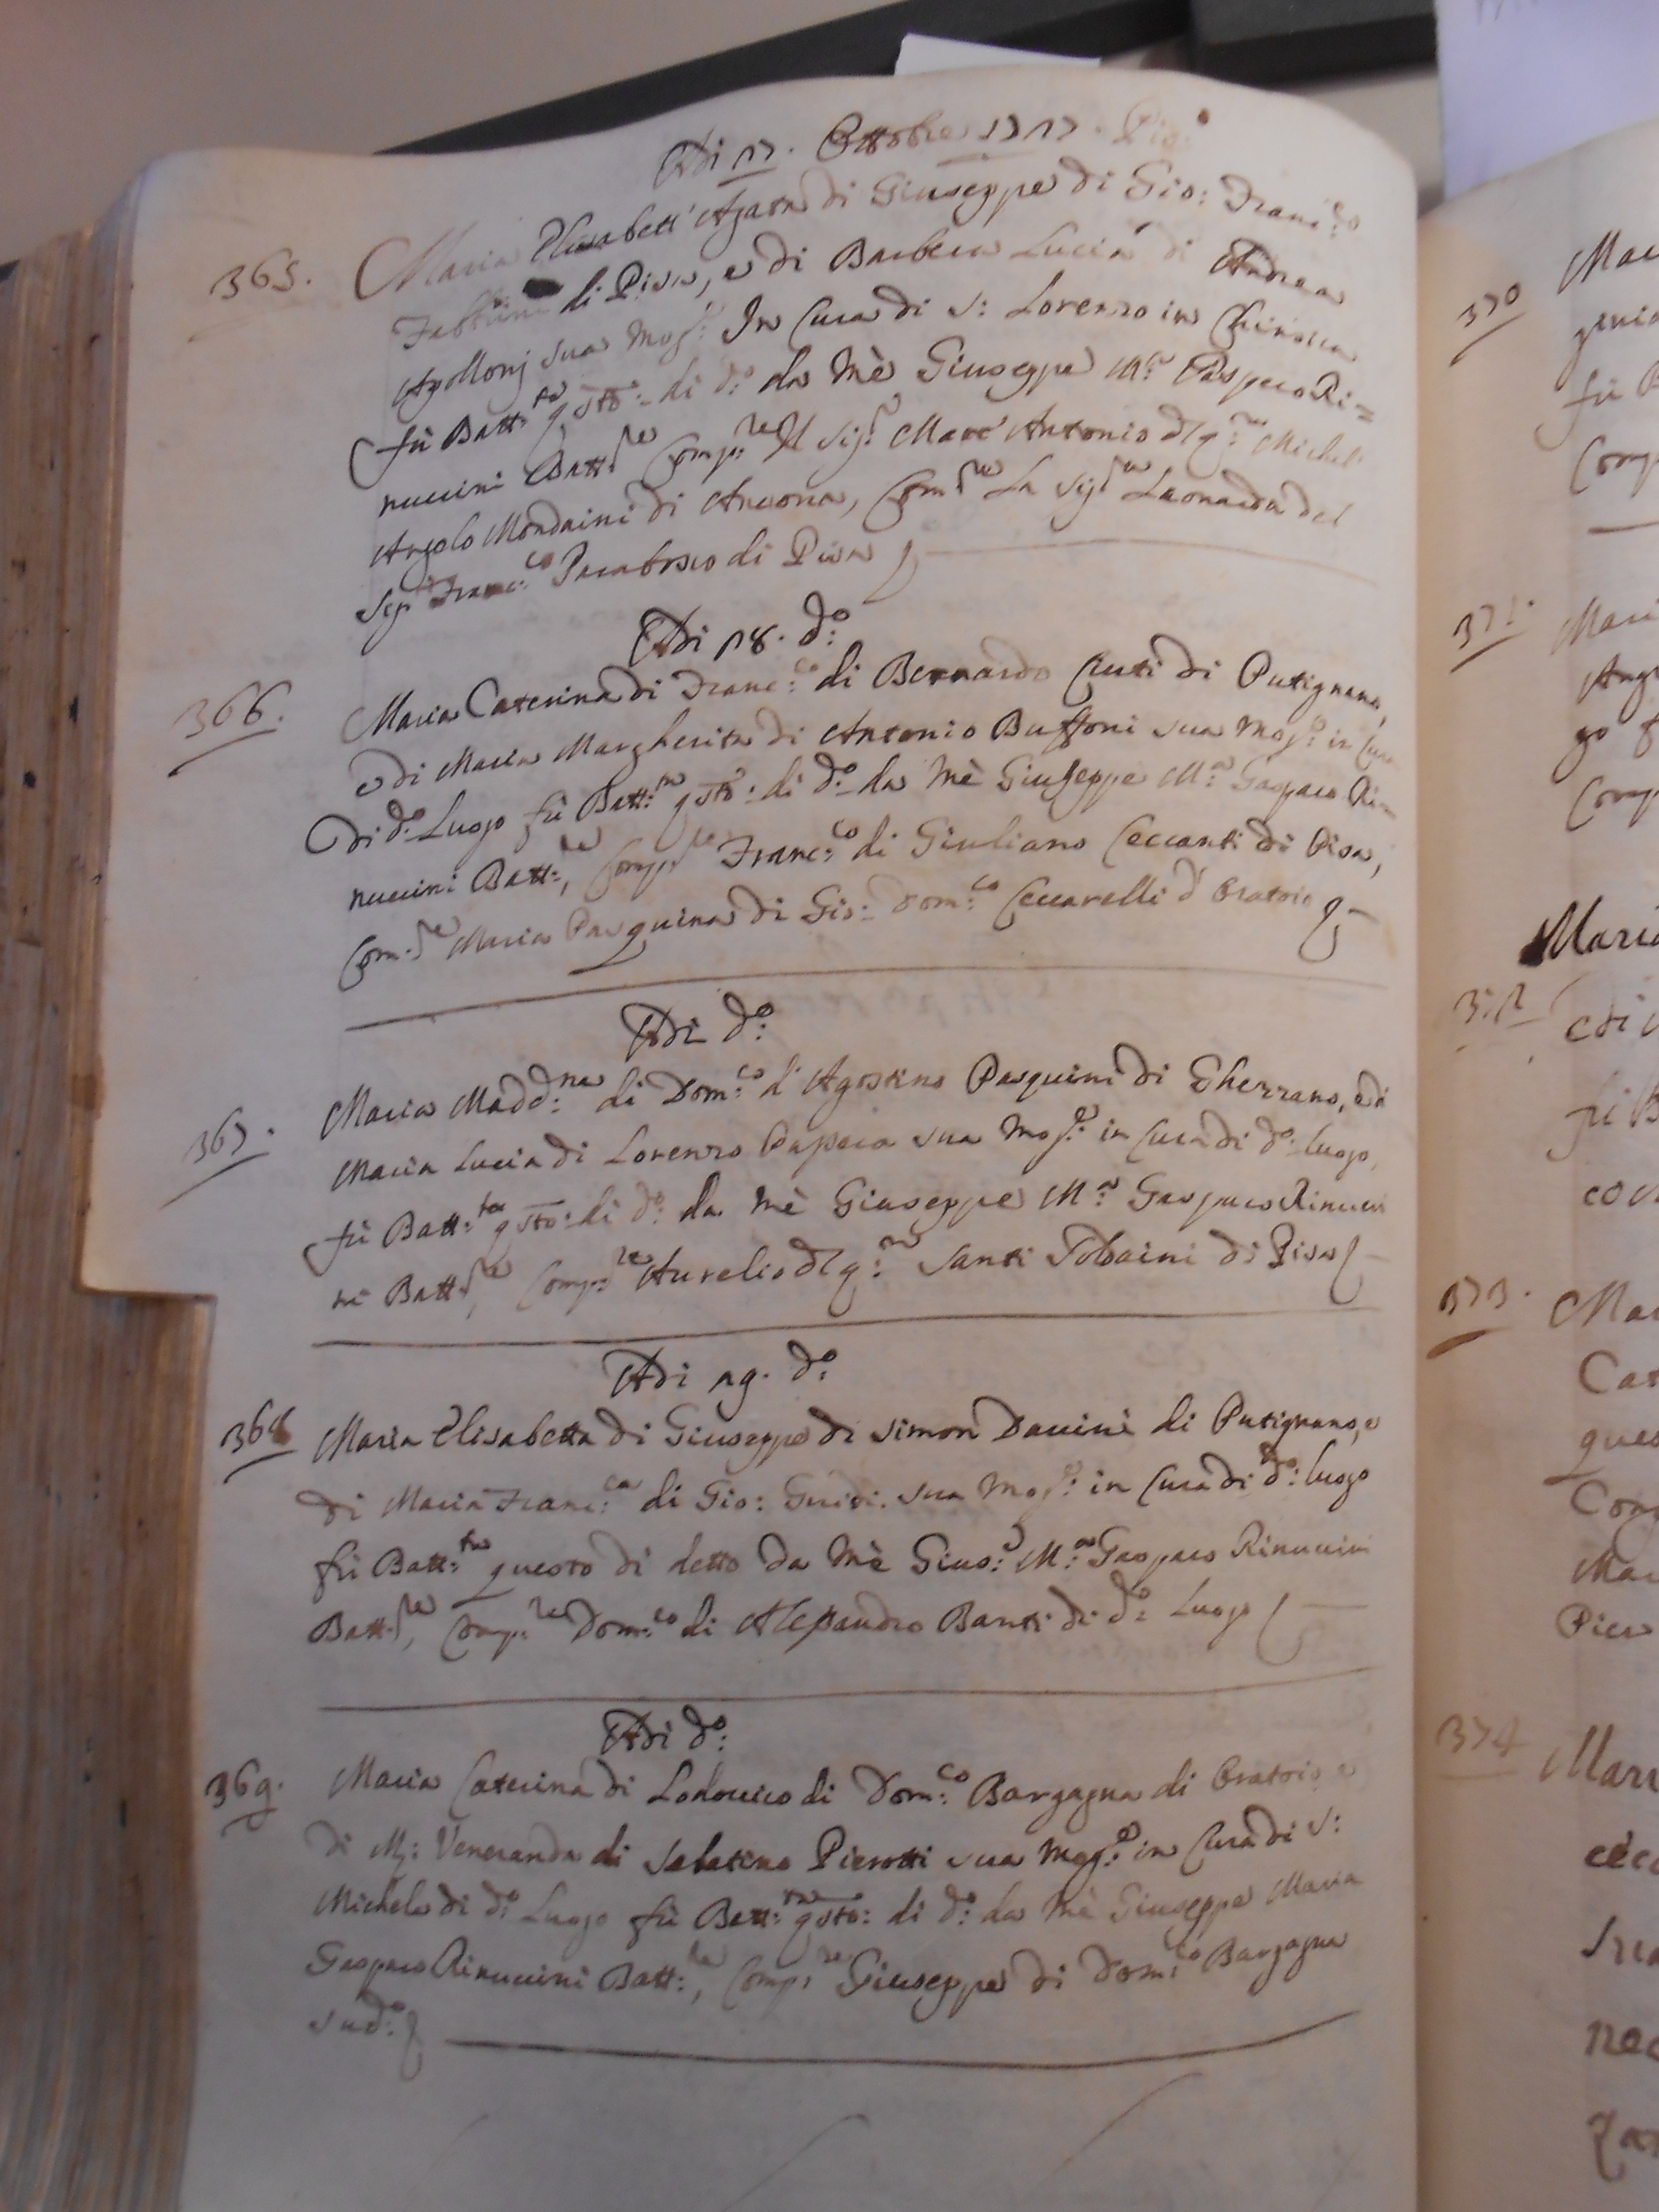 Adi 17. Ottobre 1717. Pis:
365. Maria Elisabett' Agata di Giuseppe di Gio: Franc:co
Fabbrini di Pisa, e di Barbera Lucia di Andrea
Apollonj sua Mog:e In Cura di S: Lorenzo in Chinsica
fù Batt:ta q.sto di d:o da Mè Giuseppe M:a Gasparo Ri=
nuccini Batt:re Comp:re Il Sig:r Marc' Antonio d q:m Michel
Angelo Mondaini di Ancona, Com:re La Sig:ra Leonarda del
Sig:r Franc:co di Pisa
Adi 18. d:o
366. Maria Caterina di Franc:co di Bernardo Ciuti di Putignano,
e di Maria Margherita di Antonio Buffoni sua Mog:e in Cura
di d:o Luogo fù Batt:ta q.sto di d:o da Mè Giuseppe M:a Gasparo Ri=
nuccini Batt:re, Comp:re Franc:co di Giuliano Ceccanti di Pisa,
Com:re Maria Pasquina di Gio: Dom:co Ceccarelli d' Oratoio
Adi d:o
367. Maria Madd:na di Dom:co d' Agostino Pasquini di Ghezzano, e di
Maria Lucia di Lorenzo Papera sua Mog:e in Cura di d:o luogo,
fù Batt:ta q.sto di d:o da Mè Giuseppe M:a Gasparo Rinucci
ni Batt:re, Comp:re Aurelio d q:m Santi Tobaini di Pisa
Adi 19. d:o
368 Maria Elisabetta di Giuseppe di Simon Davini di Putignano, e
di Maria Franc:ca di Gio: Guidi sua Mog:e in Cura di d:o luogo
fù Batt:ta questo di detto da Mè Gius:e M:a Gasparo Rinuccini
Batt:re, Comp:re Dom:co di Alessandro Banti di d:o Luogo
Adi d:o
369. Maria Caterina di Lodovico di Dom:co Bargagna di Oratoio e
di M:a Veneranda di Sabatino Pierotti sua Mog:e in Cura di S:
Michele di d:o Luogo fù Batt:ta q.sto di d:o da Mè Giuseppe Maria
Gasparo Rinuccini Batt:re, Comp:re Giuseppe di Dom:co Bargagna
sud:o
370
Mar
fù B
Comp
371.
Mari
Ang
go f
Comp
Maria
372
e di
fù B
co
373.
Mar
Cat
ques
Com
Mar
Pier
374
Mari